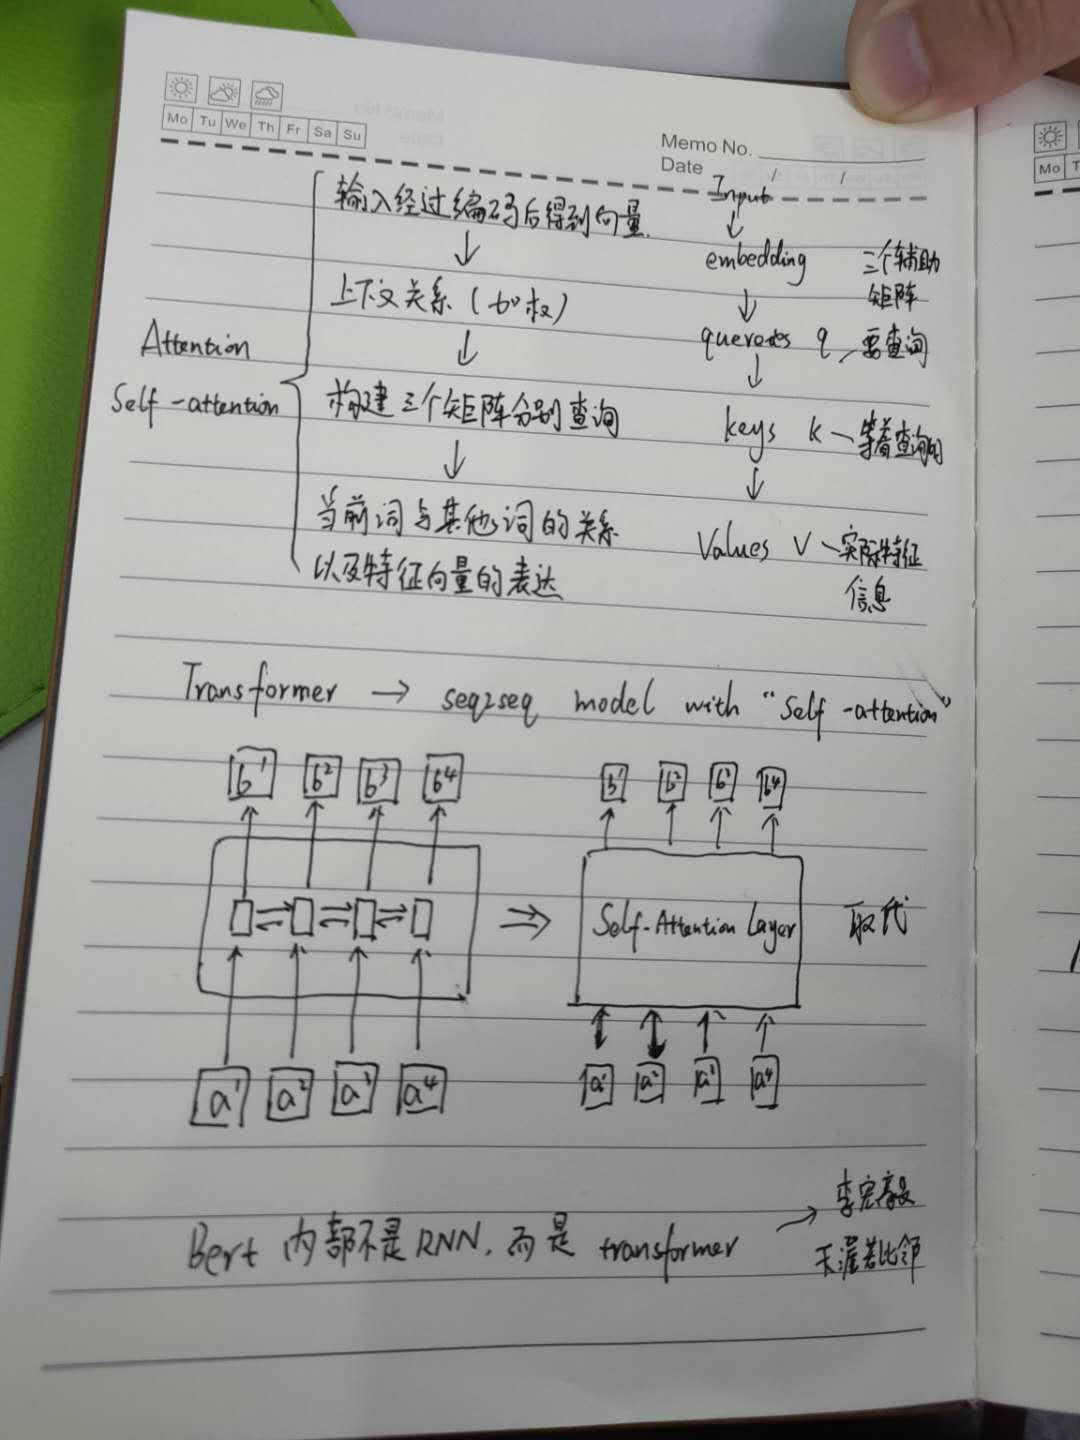 Mo Tu We Th Fr Sa Su
Memo No.
Date / /
Attention
Self-attention
输入经过编码后得到向量.
↓
上下文关系(加权)
↓
构建三个矩阵分别查询
↓
当前词与其他词的关系
以及特征向量的表达
Input
↓
embedding
三个辅助
矩阵
↓
q 要查询
↓
keys K—等着查询的
↓
Values V—实际特征
信息
Transformer → seq2seq model with "Self-attention"
b¹ b² b³ b⁴
a¹ a² a³ a⁴
⇒
b¹ b² b³ b⁴
Self-Attention Layer
a¹ a² a³ a⁴
取代
Bert 内部不是RNN,而是 transformer →
李宏毅
天涯若比邻
Mo